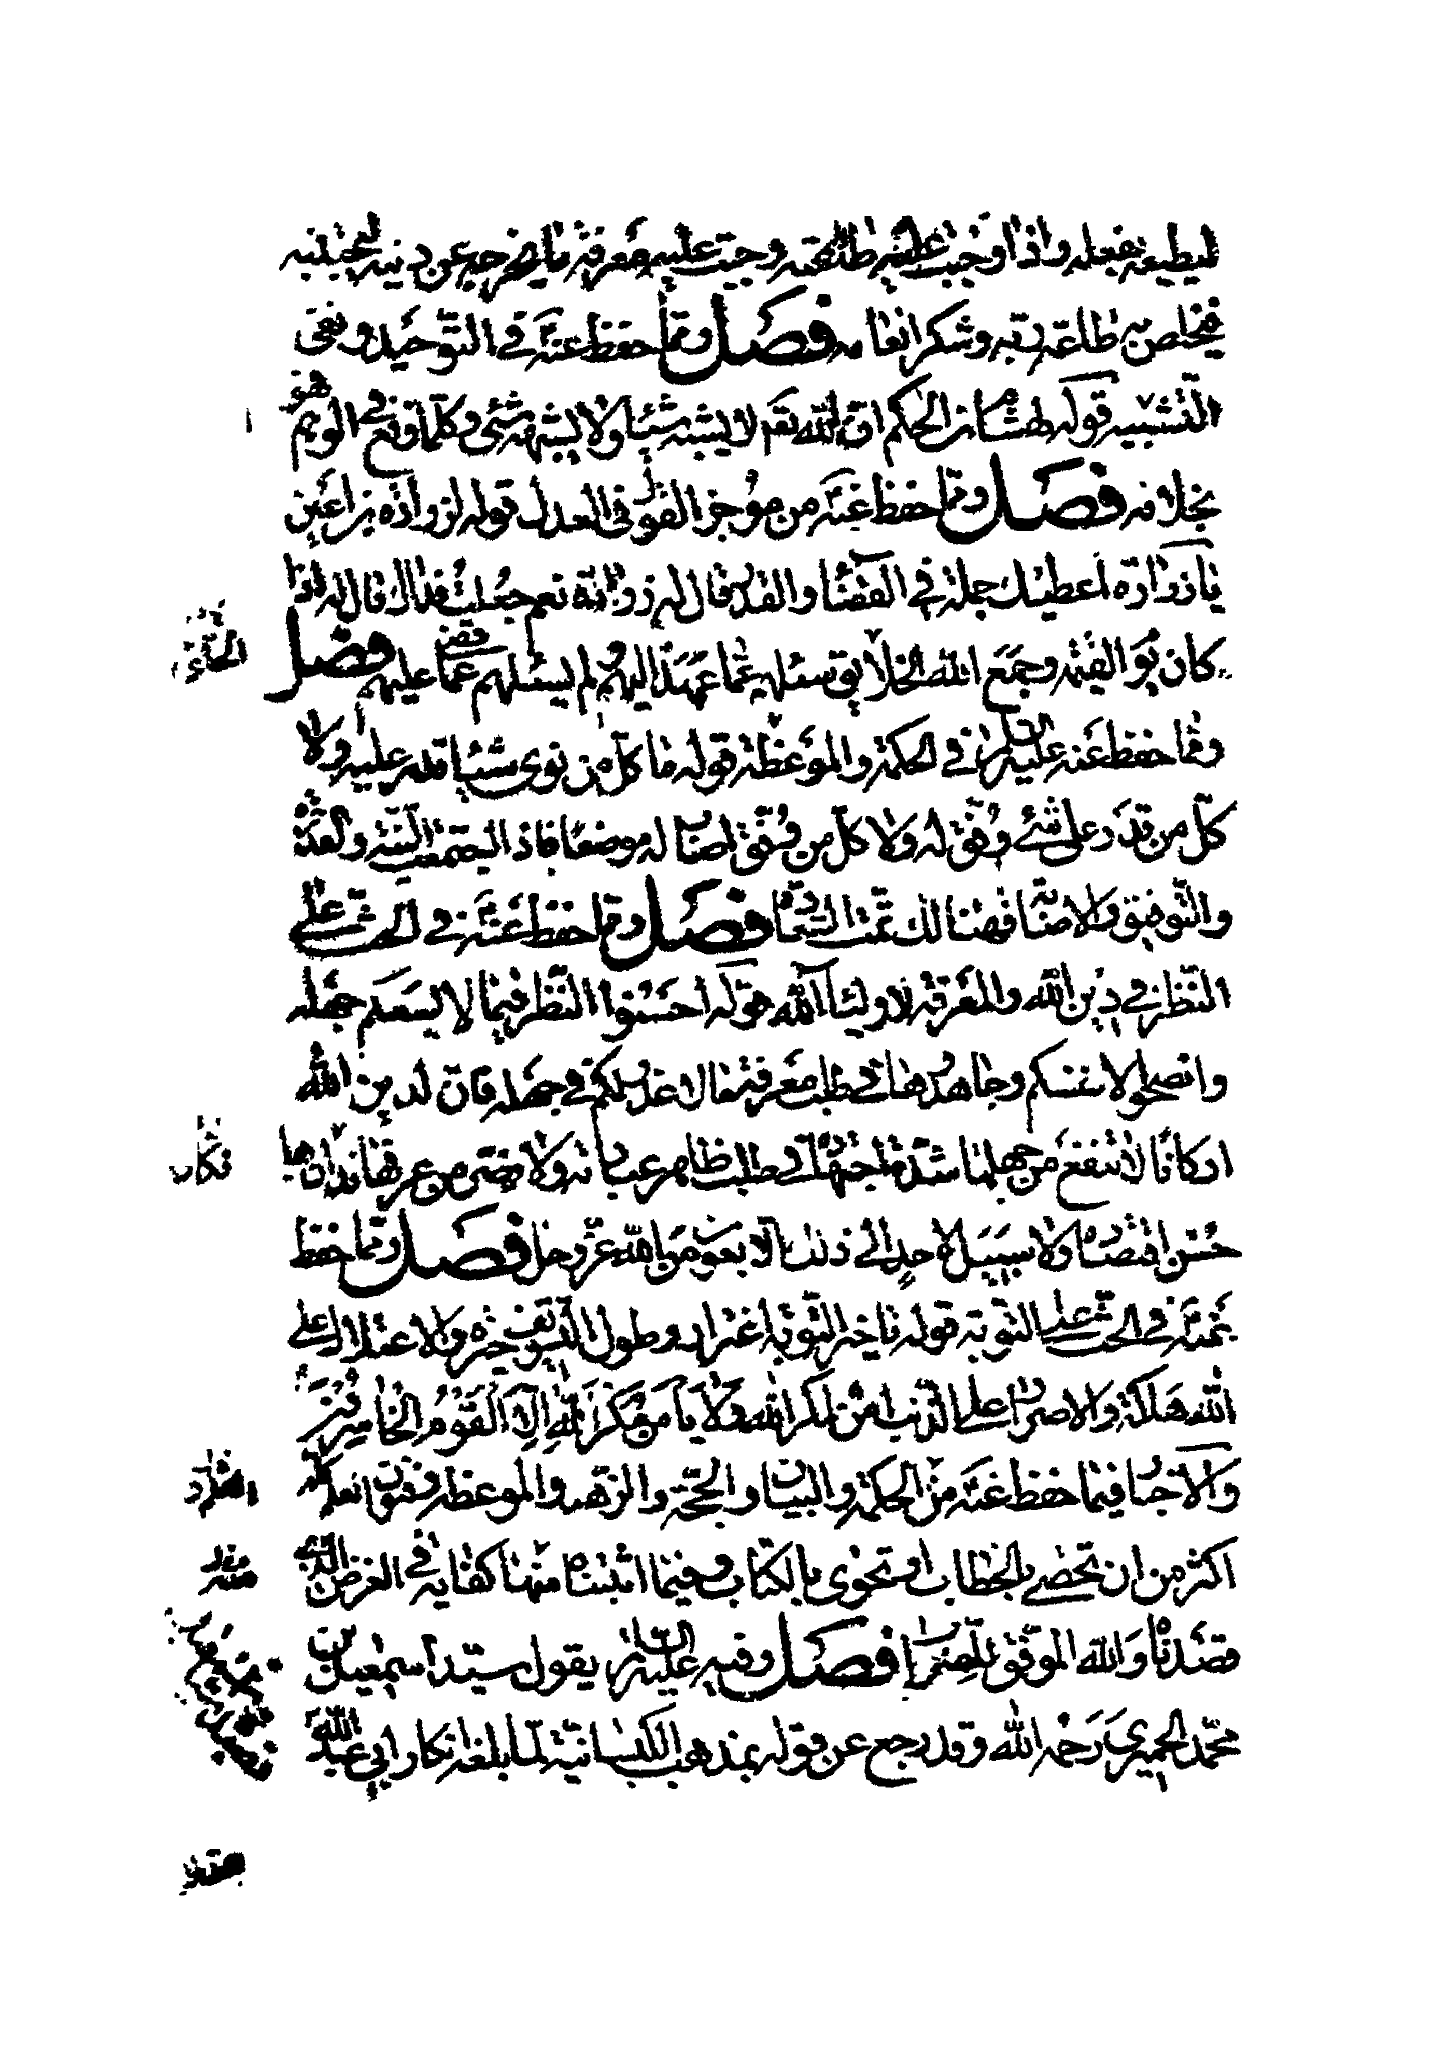 ليطيعه بفعله واذا وجبت عليه طاعته وجبت عليه معرفة ما يخرجه عن دينه ليجتنبه
فيخلص به طاعة ربه وشكر انعامه فصل ومما حفظ عنه في التوحيد ونفي
التشبيه قوله لهشام بن الحكم ان الله تعم لا يشبه شيئا ولا يشبهه شئ وكلما وقع في الوهم فهو
بخلافه فصل ومما حفظ عنه من موجز القول في العدل قوله لزرارة بن اعين
يا زرارة اعطيك جملة في القضاء والقدر قال له زرارة نعم جعلت فداك قال له اذا
كان يوم القيمة وجمع الله الخلايق سئلهم عما عهد اليهم ولم يسئلهم عما قضى عليهم فصل
ومما حفظ عنه عليه السلام في الحكمة والموعظة قوله ما كل من نوى شيئا قدر عليه ولا
كل من قدر على شئ وفق له ولا كل من وفق اصاب له موضعا فاذا اجتمعت النية والقدرة
والتوفيق والاصابة فهنالك تمت السعادة فصل ومما حفظ عنه في الحث على
النظر في دين الله والمعرفة لاولياء الله قوله احسنوا النظر فيما لا يسعكم جهله
وانصحوا لانفسكم وجاهدوها في طلب معرفة ما لا عذر لكم في جهله فان لدين الله
اركانا لا تنفع من جهلها شدة اجتهاده في طلب ظاهر عبادته ولا يضر من عرفها فدان بها
حسن اقتصاده ولا سبيل لاحد الى ذلك الا بعون من الله عز وجل فصل ومما حفظ
عنه في الحث على التوبة قوله تاخير التوبة اغترار وطول التسويف حيرة والاعتلال على
الله هلكة والاصرار على الذنب امن لمكر الله ولا يأمن مكر الله الا القوم الخاسرون
والاخبار فيما حفظ عنه من الحكمة والبيان والحجة والزهد والموعظة وفنون العلم كله
اكثر من ان تحصى بالخطاب او تحوى بالكتاب وفيما اثبتناه منها كفاية في الغرض الذي
قصدناه والله الموفق للصواب فصل وفيه عليه السلام يقول سيد اسمعيل بن
محمد الحميري رحمه الله وقد رجع عن قوله بمذهب الكيسانية لما بلغه انكار ابي عبد الله